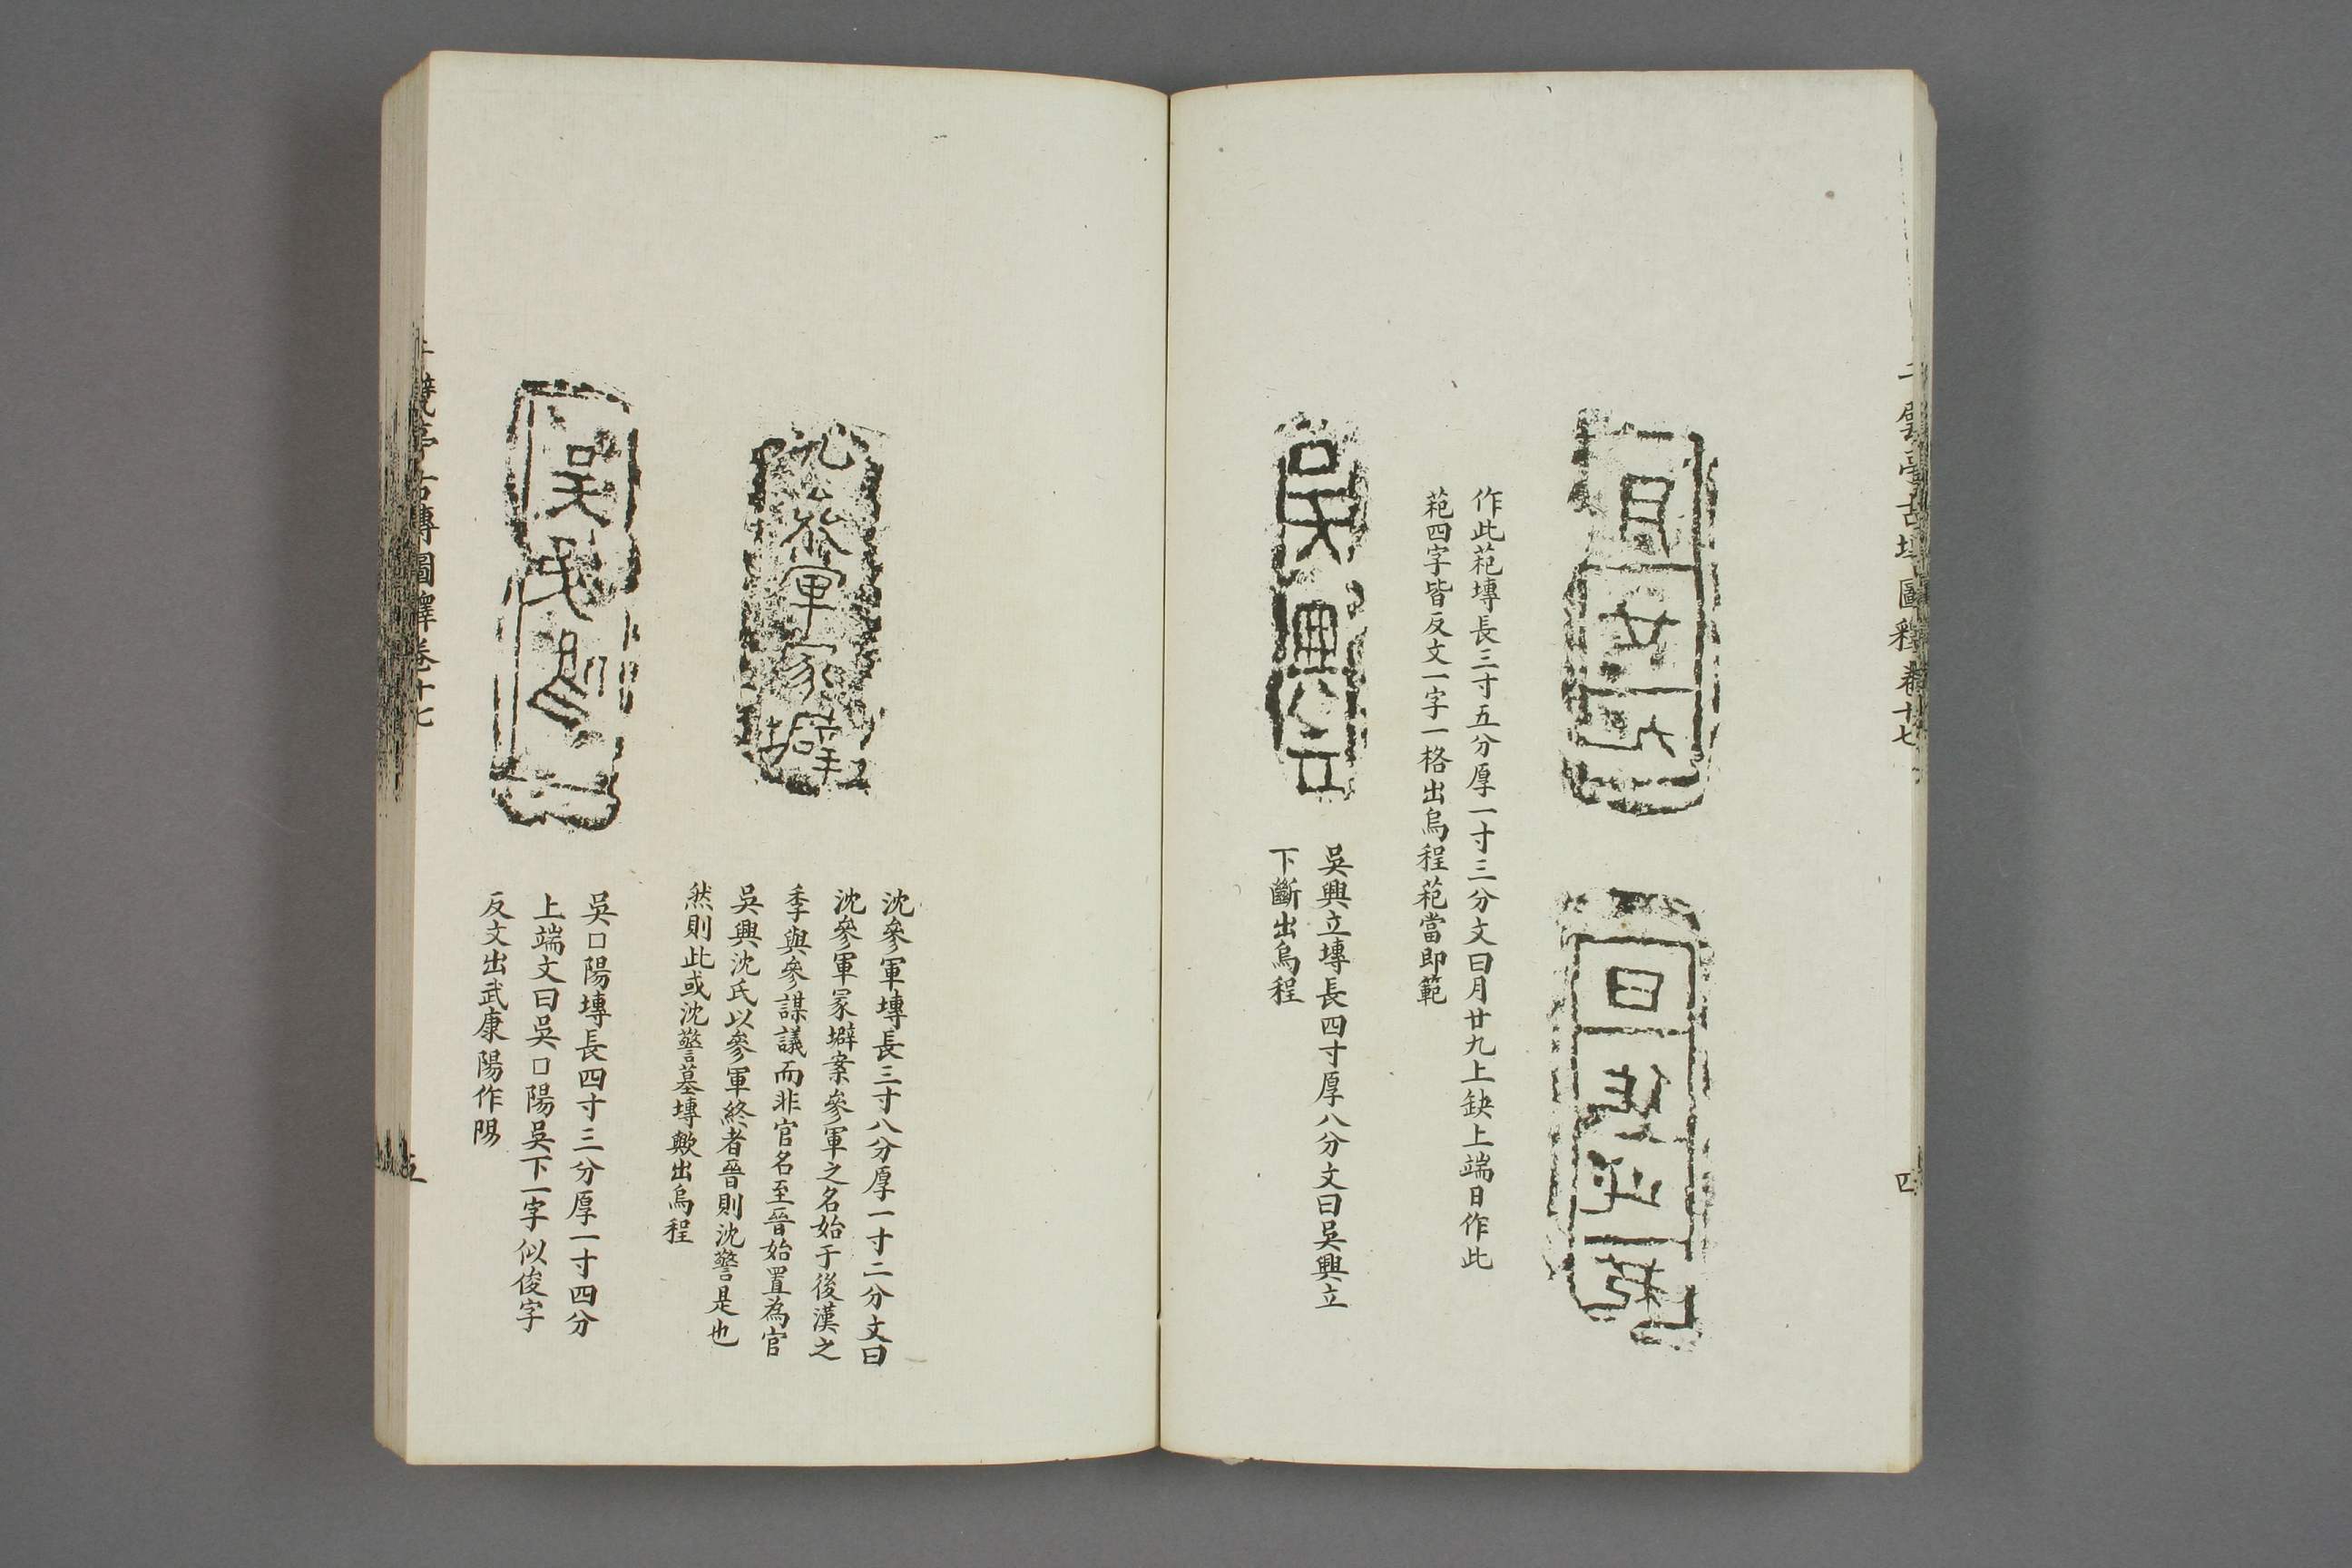 作此范塼長三寸五分厚一寸三分文曰月廿九上缺上端日作此
范四字皆反文一字一格出烏程范當即範
吳興立塼長四寸厚八分文曰吳興立
下斷出烏程
四
沈參軍塼長三寸八分厚一寸二分文曰
沈參軍冢壀案參軍之名始于後漢之
季與參謀議而非官名至晉始置為官
吳興沈氏以參軍終者晉則沈警是也
然則此或沈警墓塼歟出烏程
吳口陽塼長四寸三分厚一寸四分
上端文曰吳口陽吳下一字似俊字
反文出武康陽作昜